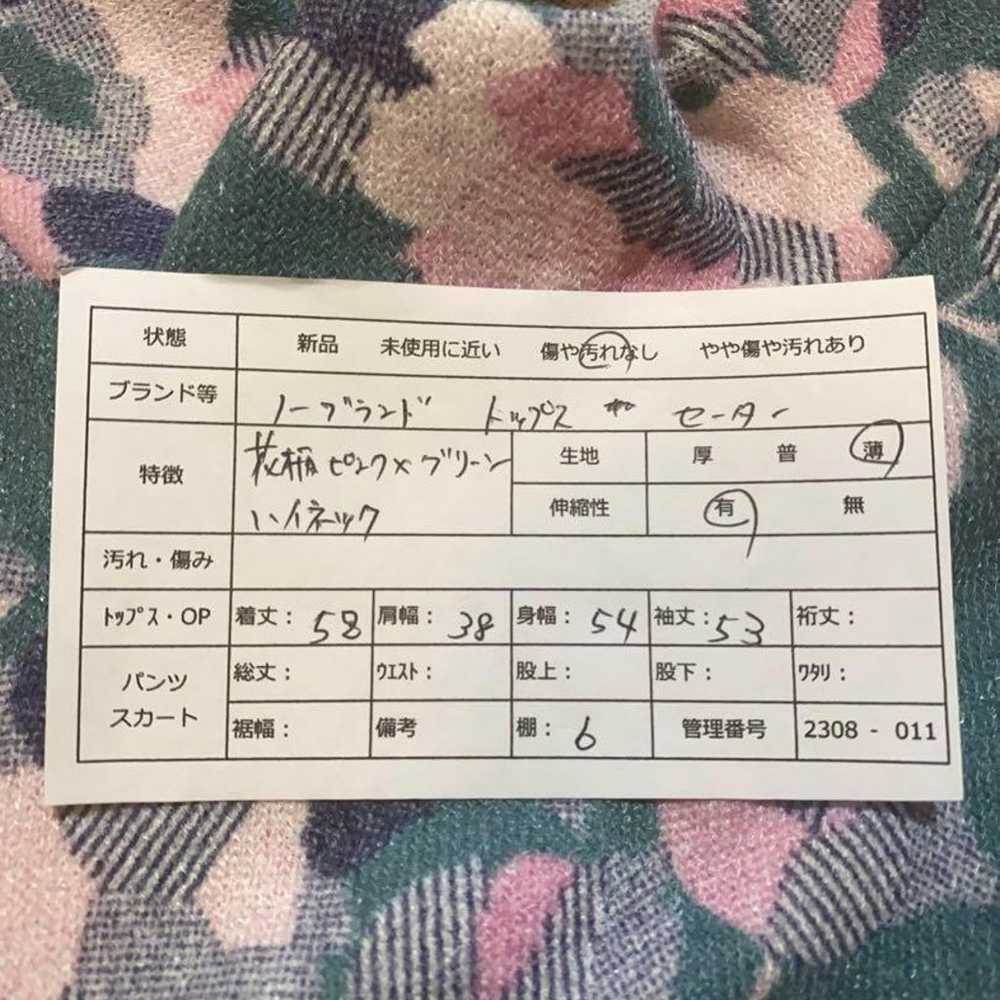 状態 新品 未使用に近い 傷や汚れなし やや傷や汚れあり
ブランド等 ノーブランド トップス セーター
特徴 花柄ピンク×グリーン ハイネック
生地 厚 普 薄
伸縮性 有 無
汚れ・傷み
トップス・OP 着丈：58 肩幅：38 身幅：54 袖丈：53 裄丈：
パンツ スカート 総丈： ウエスト： 股上： 股下： ワタリ：
裾幅： 備考 棚：6 管理番号 2308 - 011